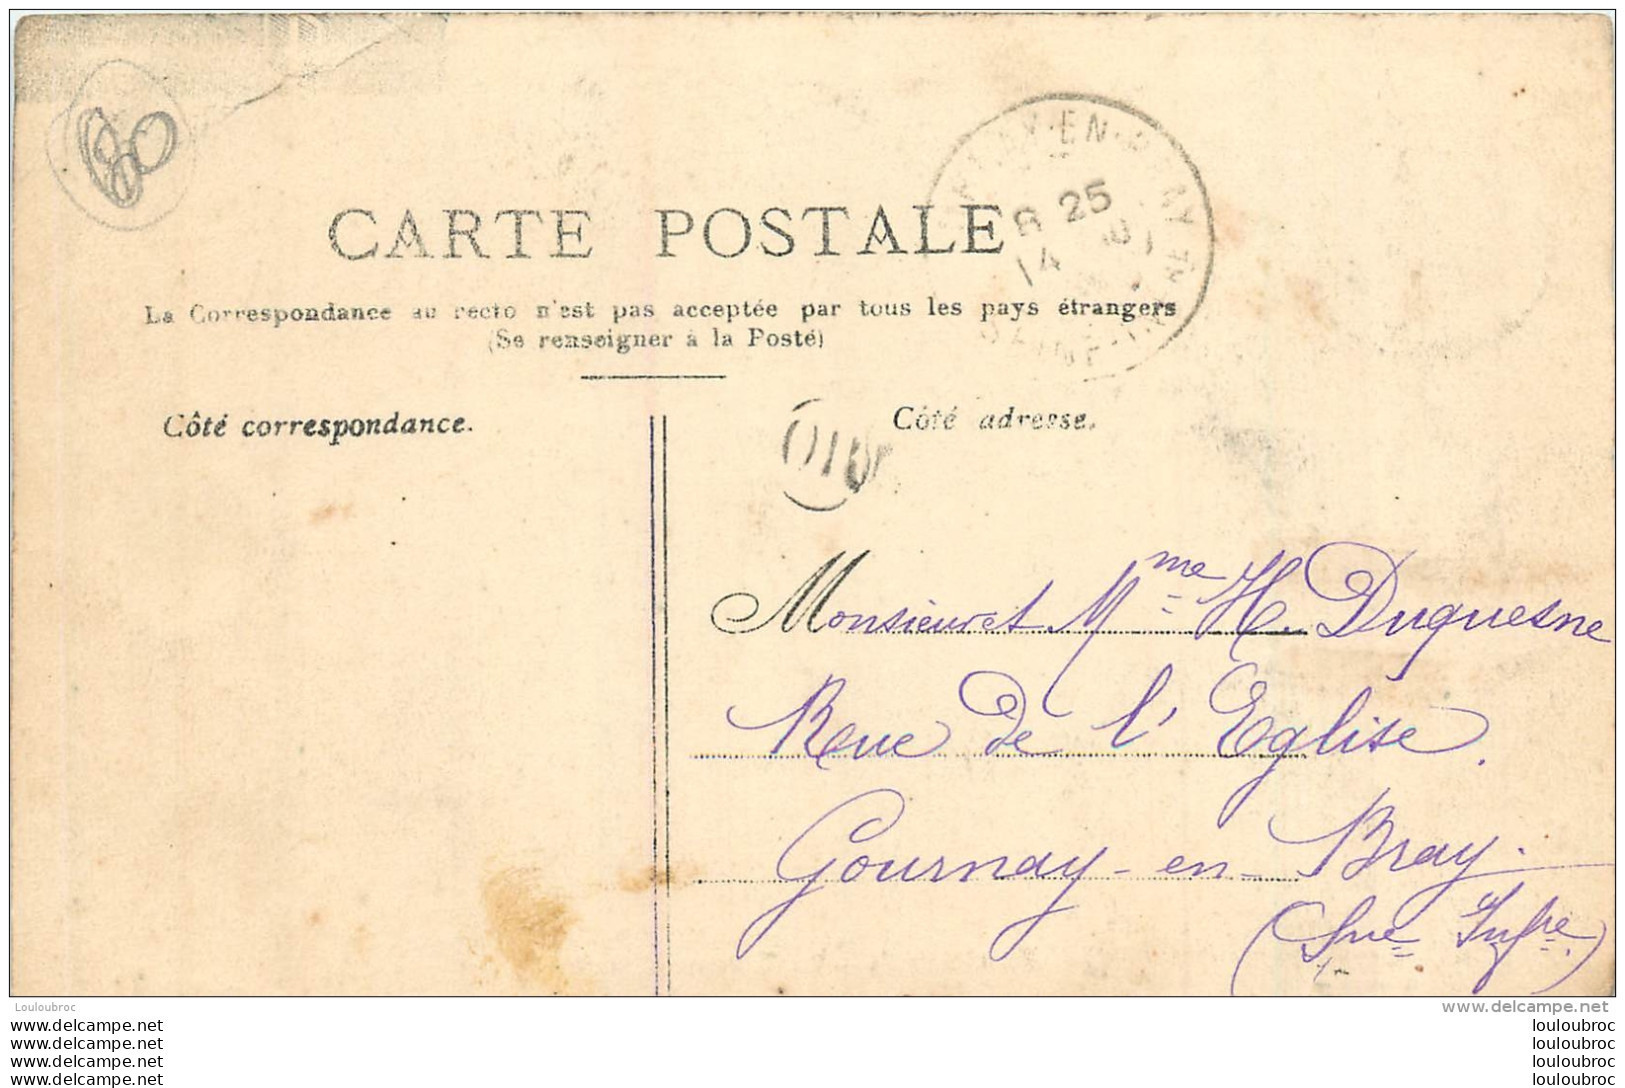 80
EN
8 25
14
CARTE POSTALE
La Correspondance au recto n'est pas acceptée par tous les pays étrangers
(Se renseigner à la Poste)
Côté correspondance.
Côté adresse.
Monsieur et Mme H. Duquesne
Rue de l'Eglise.
Gournay-en-Bray.
(Sne Infre)
Louloubroc
www.delcampe.net
www.delcampe.net
louloubroc
www.delcampe.net
louloubroc
www.delcampe.net
louloubroc
www.delcampe.net
louloubroc